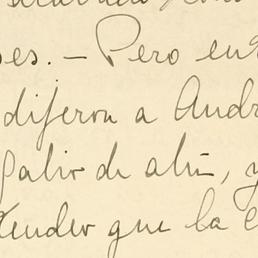 es. — Pero en
dijeron a Andr
salió de ahí, y
tender que la e